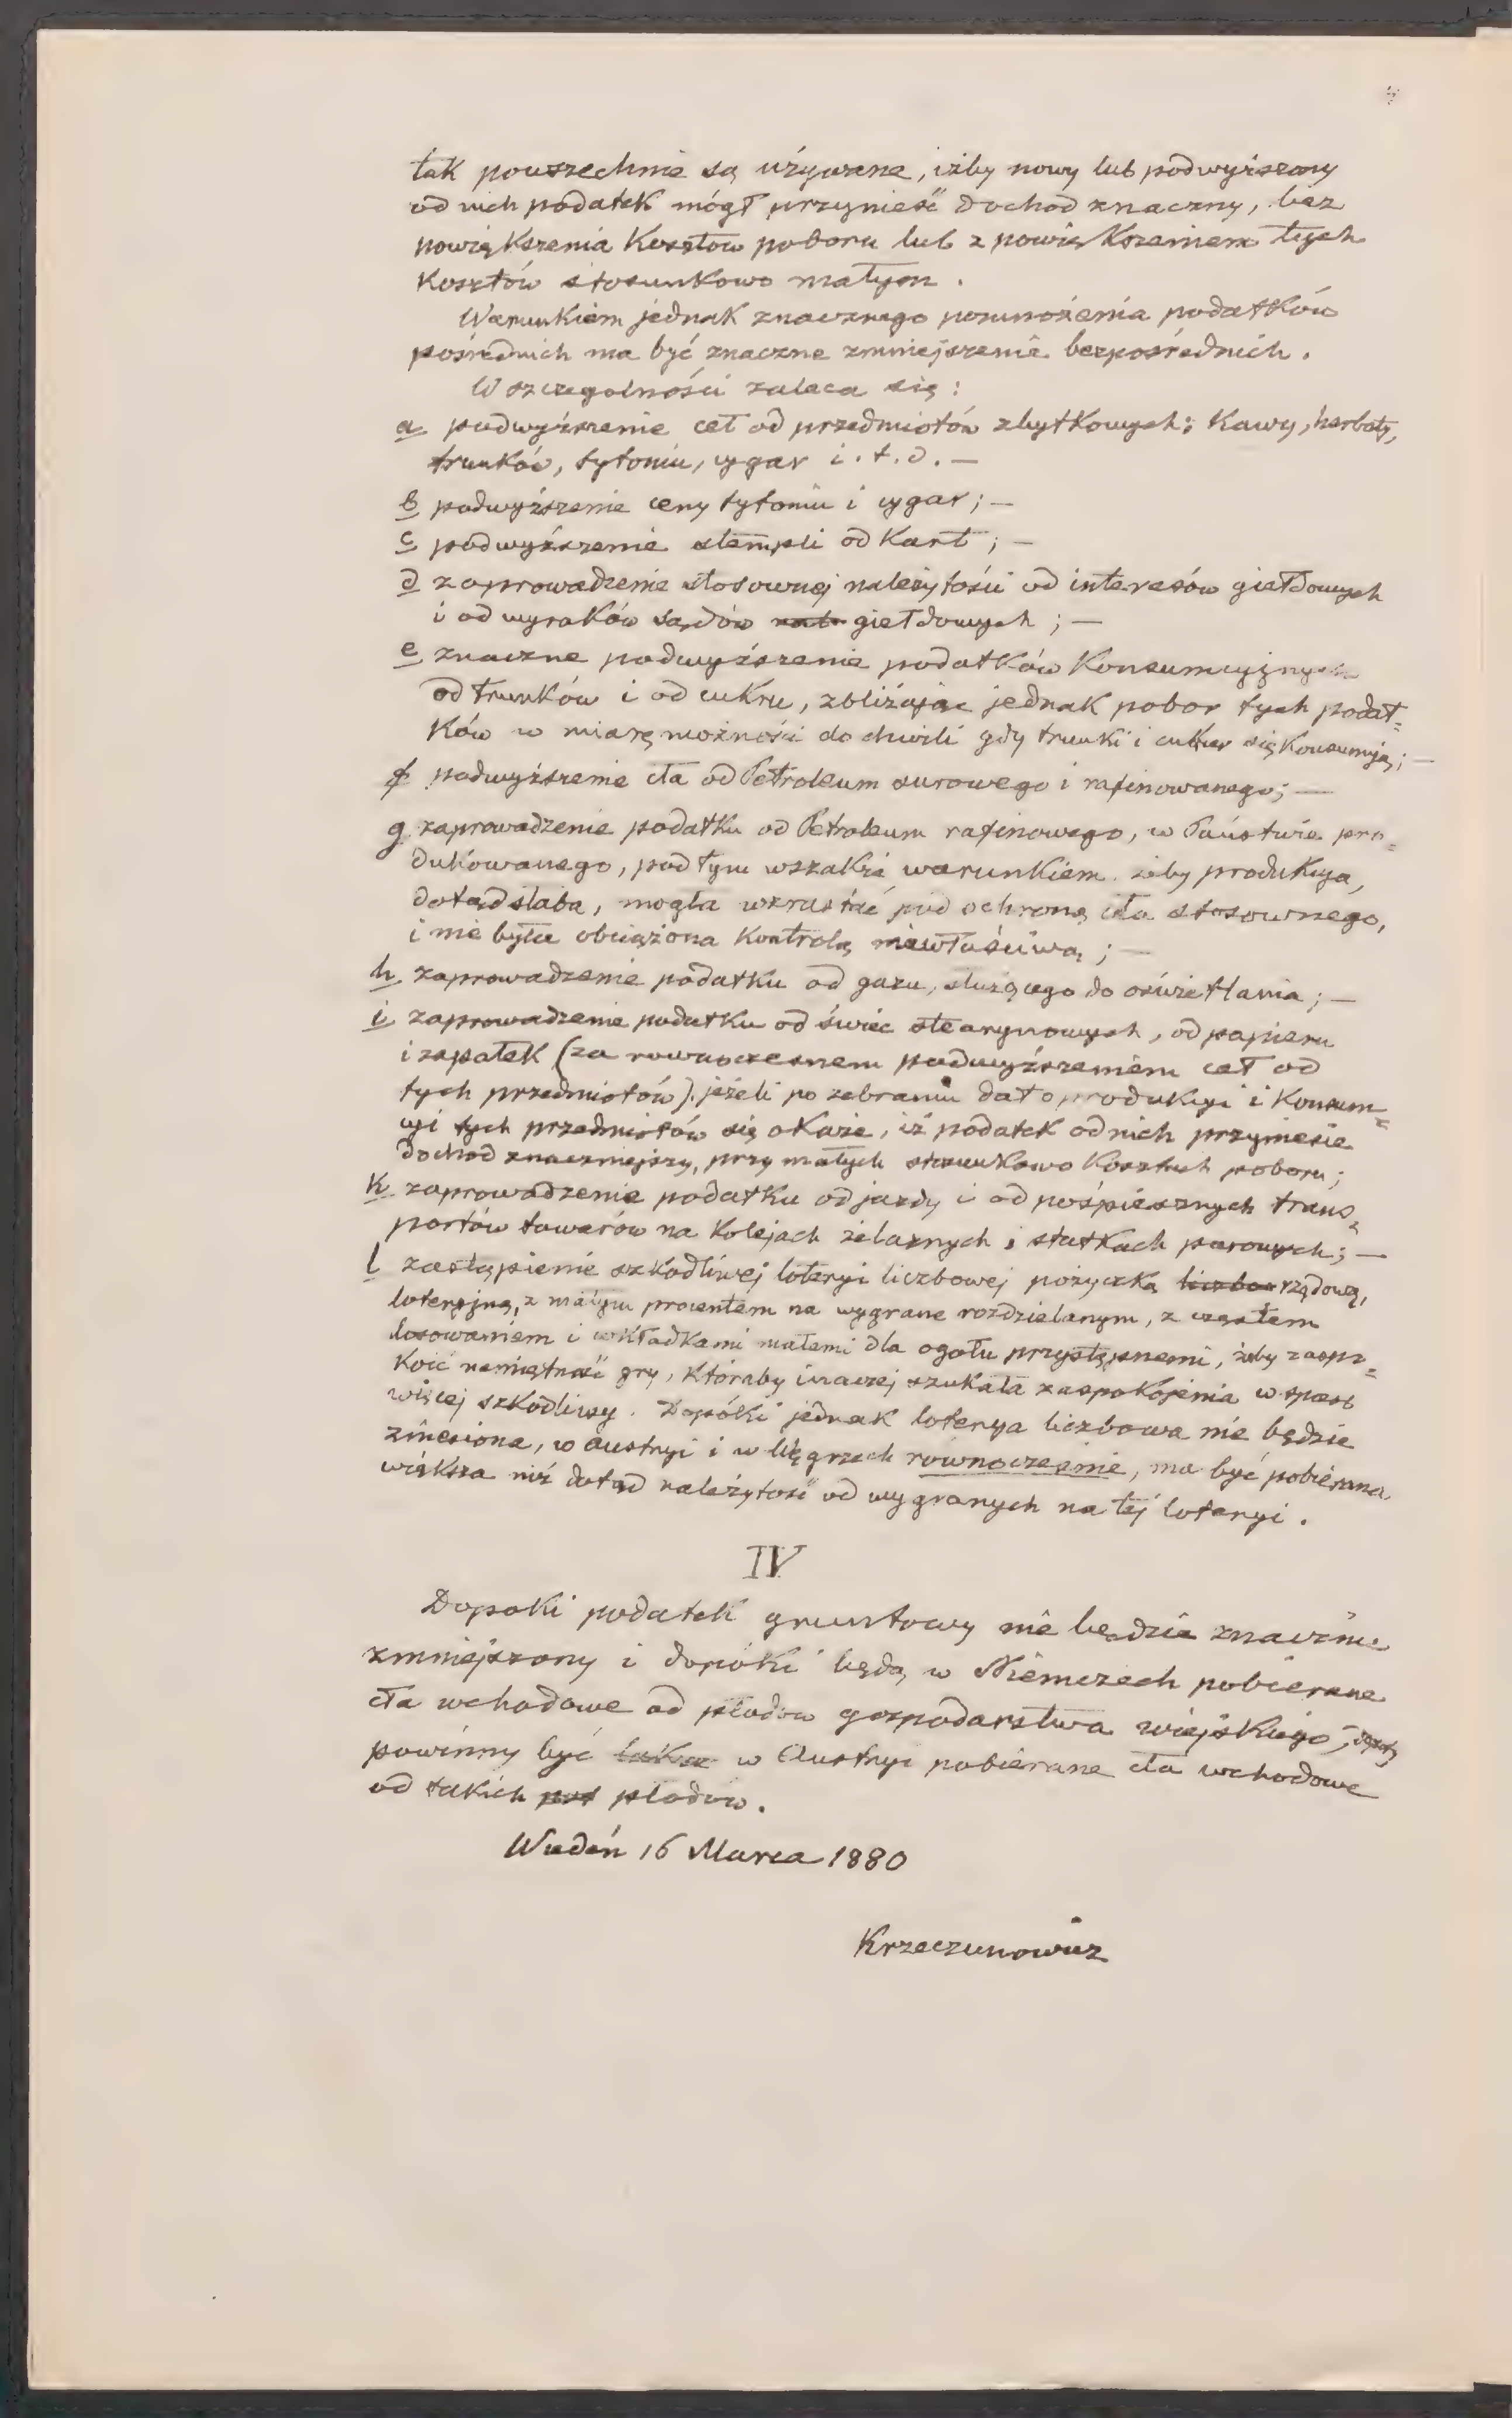 tak powszechnie są używane, iżby nowy lub podwyższony
od nich podatek mógł przynieść dochod znaczny, bez
powiększenia Kosztow poboru lub z powiększeniem tych
Kosztów stosunkowo małym.
Warunkiem jednak znacznego pomnożenia podatków
pośrednich ma być znaczne zmniejszenie bezpośrednich.
W szczegolności zaleca się:
a podwyższenie ceł od przedmiotów zbytkowych; Kawy, herbaty,
trunków, tytoniu, cygar i.t.d.—
b podwyższenie ceny tytoniu i cygar; —
c podwyższenie stempli od Kart; —
d zaprowadzenie stosownej należytości od interesów giełdowych
i od wyroków sądów giełdowych; —
e znaczne podwyższenie podatków Konsumcyjnych
od trunków i od cukru, zbliżając jednak pobor tych podat=
ków w miarę możności do chwili gdy trunki i cukier się Konsumują; —
f podwyższenie cła od Petroleum surowego i rafinowanego; —
g zaprowadzenie podatku od Petroleum rafinowego, w Państwie pro=
dukowanego, pod tym wszakże warunkiem żeby produkcya,
dotąd słaba, mogła wzrastać pod ochroną cła stosownego,
i nie była obciążona Kontrolą niewłaściwą; —
h zaprowadzenie podatku od gazu, służącego do oświetlania; —
i zaprowadzenie podatku od świec stearynowych, od papieru
i zapałek (za rownoczesnem podwyższeniem ceł od
tych przedmiotów), jeżeli po zebraniu dat o produkcyi i Konsum=
cyi tych przedmiotów się okaże, iż podatek od nich przyniesie
dochod znaczniejszy, przy małych stosunkowo Kosztach poboru;
k zaprowadzenie podatku od jazdy i od pośpiesznych trans=
portów towarów na Kolejach żelaznych i statkach parowych; —
l zastąpienie szkodliwej loteryi liczbowej pożyczką liczbow rządową,
loteryjną, z małym procentem na wygrane rozdzielanym, z częstem
losowaniem i wkładkami małemi dla ogołu przystępnemi, żeby zaspo=
koić namiętność gry, któraby inaczej szukała zaspokojenia w sposob
więcej szkodliwy. Dopóki jednak loterya liczbowa nie będzie
zniesiona, w Austryi i w Węgrzech rownocześnie, ma być pobierana
większa niż dotąd należytość od wygranych na tej loteryi.
IV
Dopoki podatek gruntowy nie będzie znacznie
zmniejszony i dopóki będą w Niemczech pobierane
cła wchodowe od płodow gospodarstwa wiejskiego,
powinny być także w Austryi pobierane cła wchodowe
od takich płodow.
Wiedeń 16 Marca 1880
Krzeczunowicz